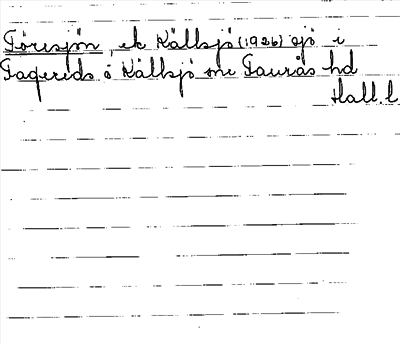 Töresjön, ek Källsjö (1926) sjö i
Fagereds o Källsjö snr Faurås hd
Hall. l.